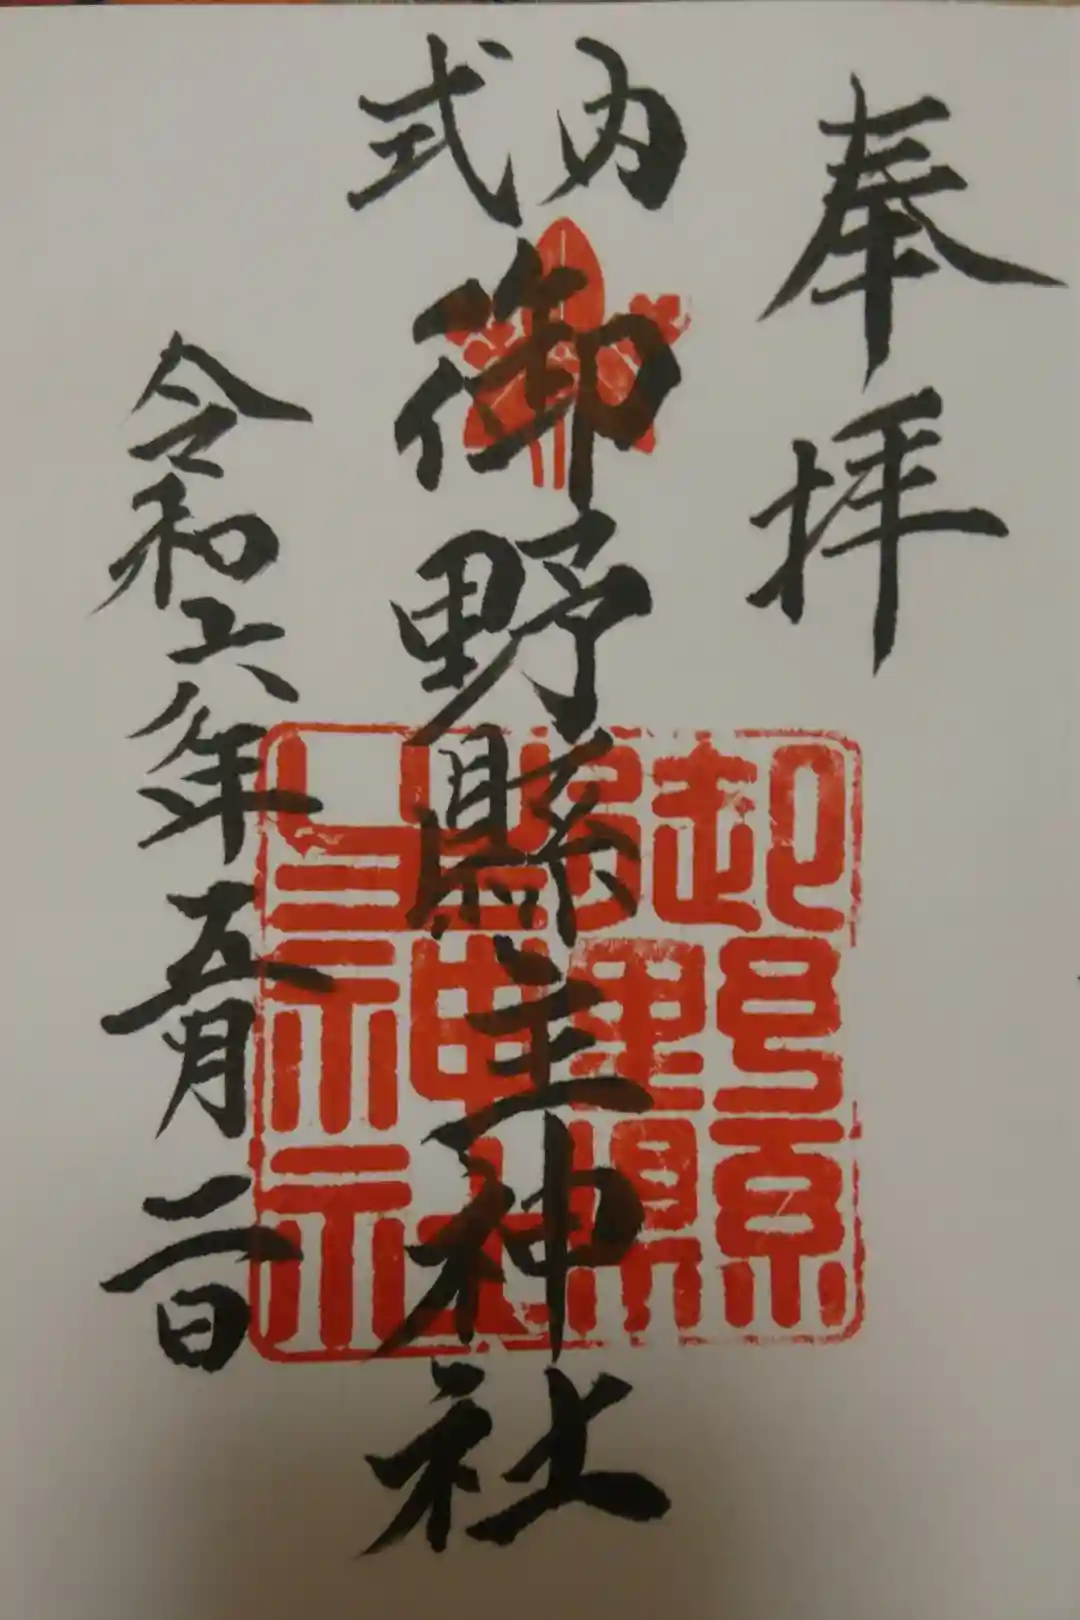 奉拝
式内
御野縣主神社
令和六年五月二日
御野縣主神社